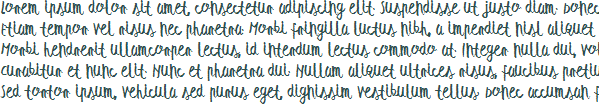 Lorem ipsum dolor sit amet, consectetur adipiscing elit. Suspendisse ut justo diam. Donec
Etiam tempor vel risus nec pharetra. Morbi fringilla luctus nibh, a imperdiet nisl aliquet
Morbi hendrerit ullamcorper lectus, id interdum lectus commodo at. Integer nulla dui, vol
curabitur et nunc elit. Nunc et pharetra dui. Nullam aliquet ultrices risus, faucibus pretiu
Sed tortor ipsum, vehicula sed purus eget, dignissim vestibulum tellus. Donec accumsan f